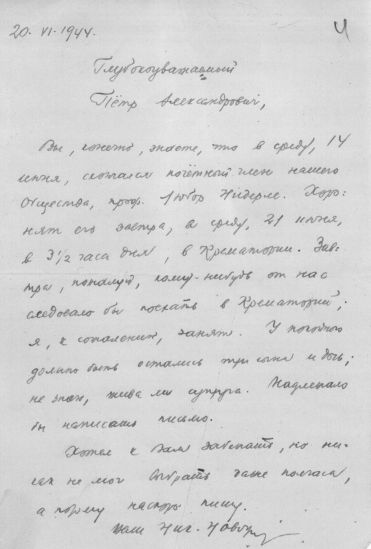 20. VI. 1944.
4
Глубокоуважаемый
Пётр Александрович,
Вы, конечно, знаете, что в среду, 14
июня, скончался почётный член нашего
Общества, проф. Любор Нидерле. Хоро-
нят его завтра, в среду, 21 июня,
в 3 1/2 часа дня, в Крематории. Зав-
тра, пожалуй, кому-нибудь от нас
следовало бы поехать в Крематорий;
я, к сожалению, занят. У покойного
должно быть остались три сына и дочь;
не знаю, жива ли супруга. Надлежало
бы написать письмо.
Хотел к Вам забежать, но ни-
как не мог выбрать даже полчаса,
а потому наскоро пишу.
Ваш